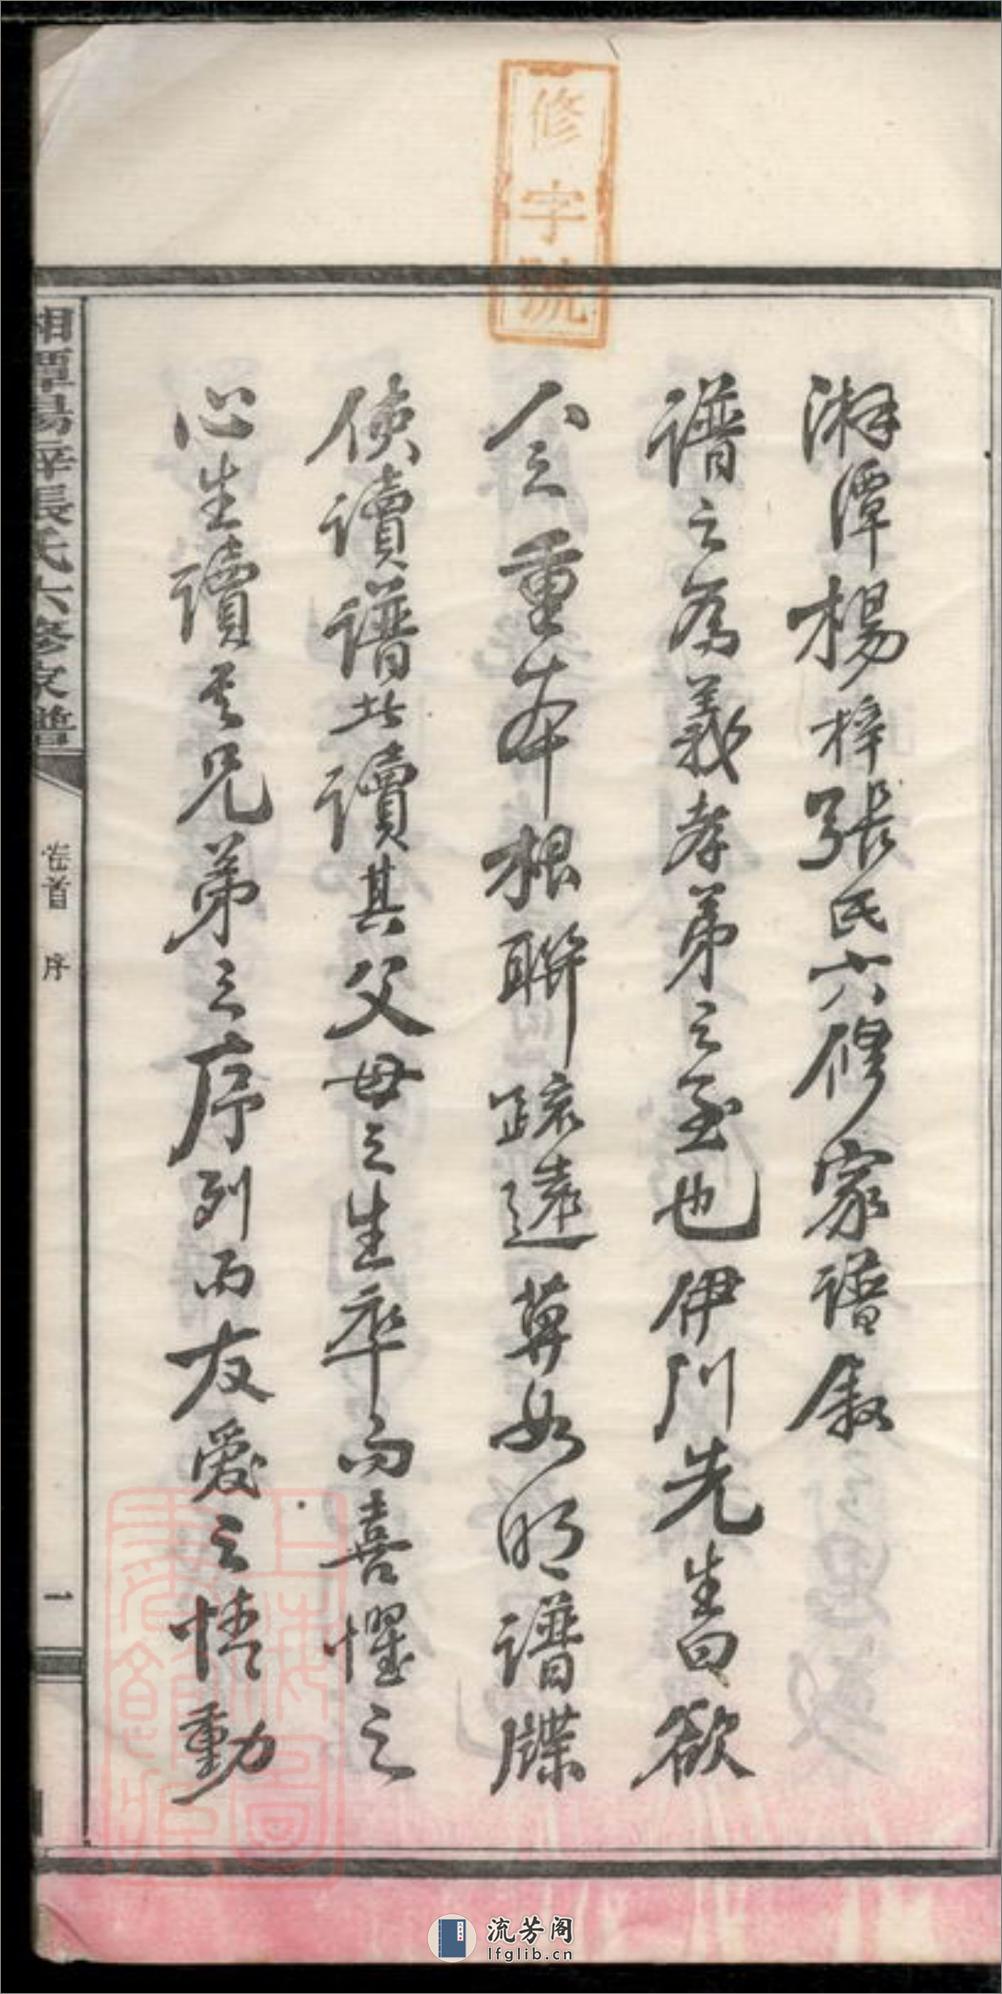 修字號
湘潭楊梓張氏六修家譜敘
譜之為義孝弟之至也伊川先生曰欲
人之重本根聯疏遠莫如明譜牒
使讀譜者讀其父母之生卒而喜懼之
心生讀其兄弟之序列而友愛之情動
湘潭楊梓張氏六修家譜
卷首 序
一
上海圖書館藏
流芳阁
lfglib.cn